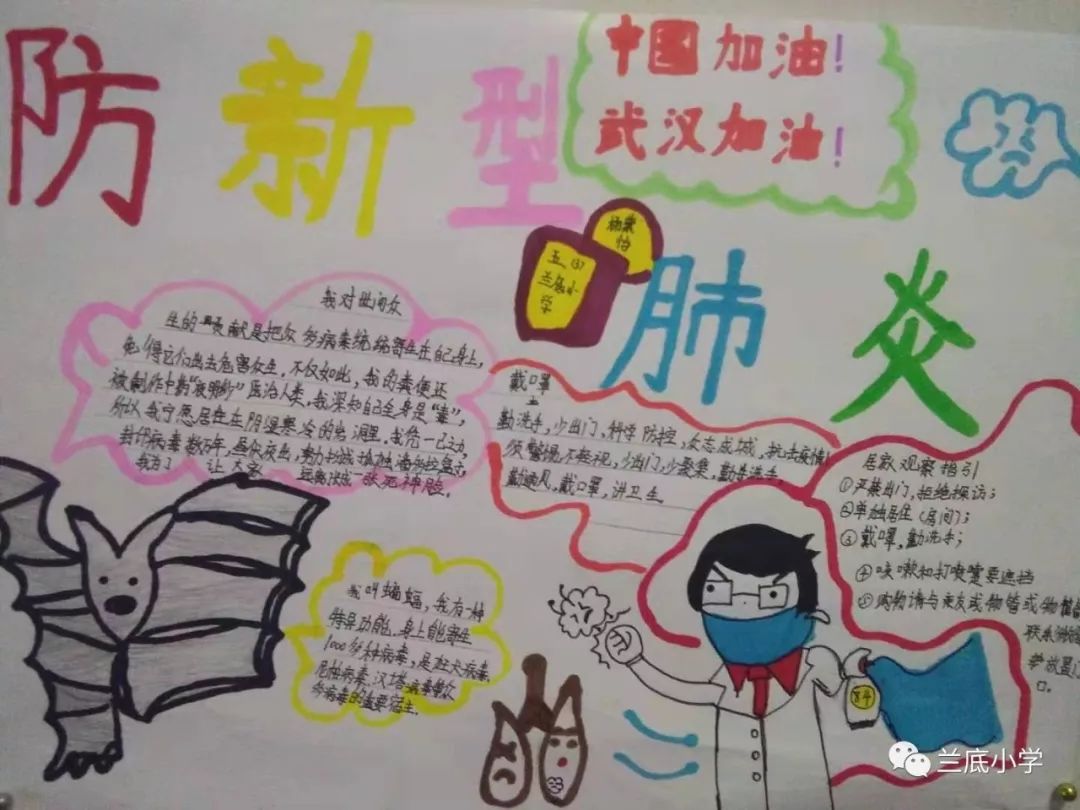 防新型
肺炎
中国加油!
武汉加油!
杨
怡
五(3)
兰底小
学
我对世间众
生的贡献是把众多病毒统统寄生在自己身上,
免得它们出去危害众生,不仅如此,我的粪便还
被制作中药“夜明砂”医治人类,我深知自己全身是“毒”,
所以我宁愿居住在阴湿寒冷的岩洞里。我凭一己之力,
封印病毒数万年,昼伏夜出,
我为了让大家远离
一张死神脸。
我叫蝙蝠,我有一种
特异功能,身上能寄生
1000多种病毒,是狂犬病毒,
尼帕病毒、汉塔病毒等众
多病毒的重要宿主。
戴口罩
勤洗手,少出门,科学防控,众志成城,抗击疫情!
须警惕,不轻视,少出门,少聚集,勤洗手,
勤通风,戴口罩,讲卫生
居家观察指引
①严禁出门,拒绝探访;
②单独居住(房间);
③戴口罩,勤洗手;
④咳嗽和打喷嚏要遮挡
⑤购物请与亲友或物管或物
联系
放置
口。
84
兰底小学